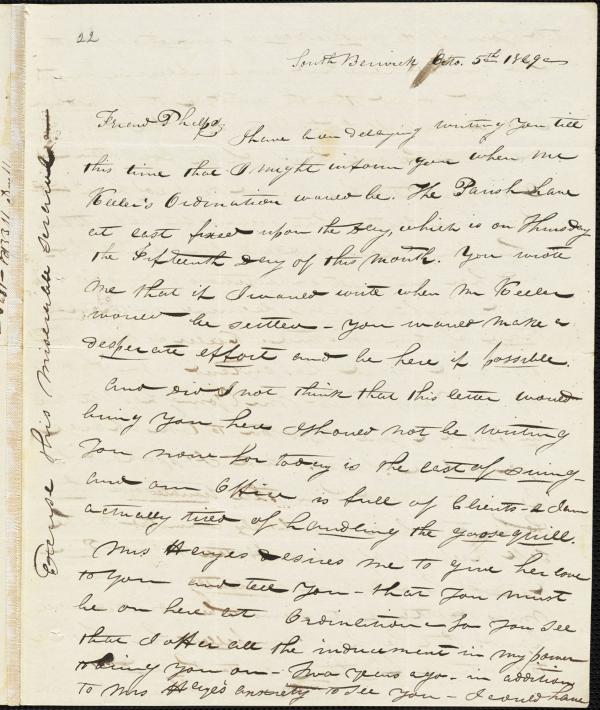 22
South Berwick Octo. 5th 1829
Friend Phelps,
I have been delaying writing you till
this time that I might inform you when Mr
Keeler's Ordination would be. The Parish have
at last fixed upon the Day, which is on Thursday
the Fifteenth day of this month. You wrote
me that if I would write when Mr Keeler
would be settled - you would make a
desperate effort and be here if possible.
And did I not think that this letter would
bring you here I should not be writing
you now for today is the last of suing -
and our Office is full of Clients - & I am
actually tired of handling the goosequill.
Mrs Hayes desires me to give her love
to you and tell you - that you must
be on here at Ordination - so you see
that I offer all the inducement in my power
to bring you on - Two years ago - in addition
to Mrs Hayes' anxiety to see you - I could have
Excuse this miserable scrawl